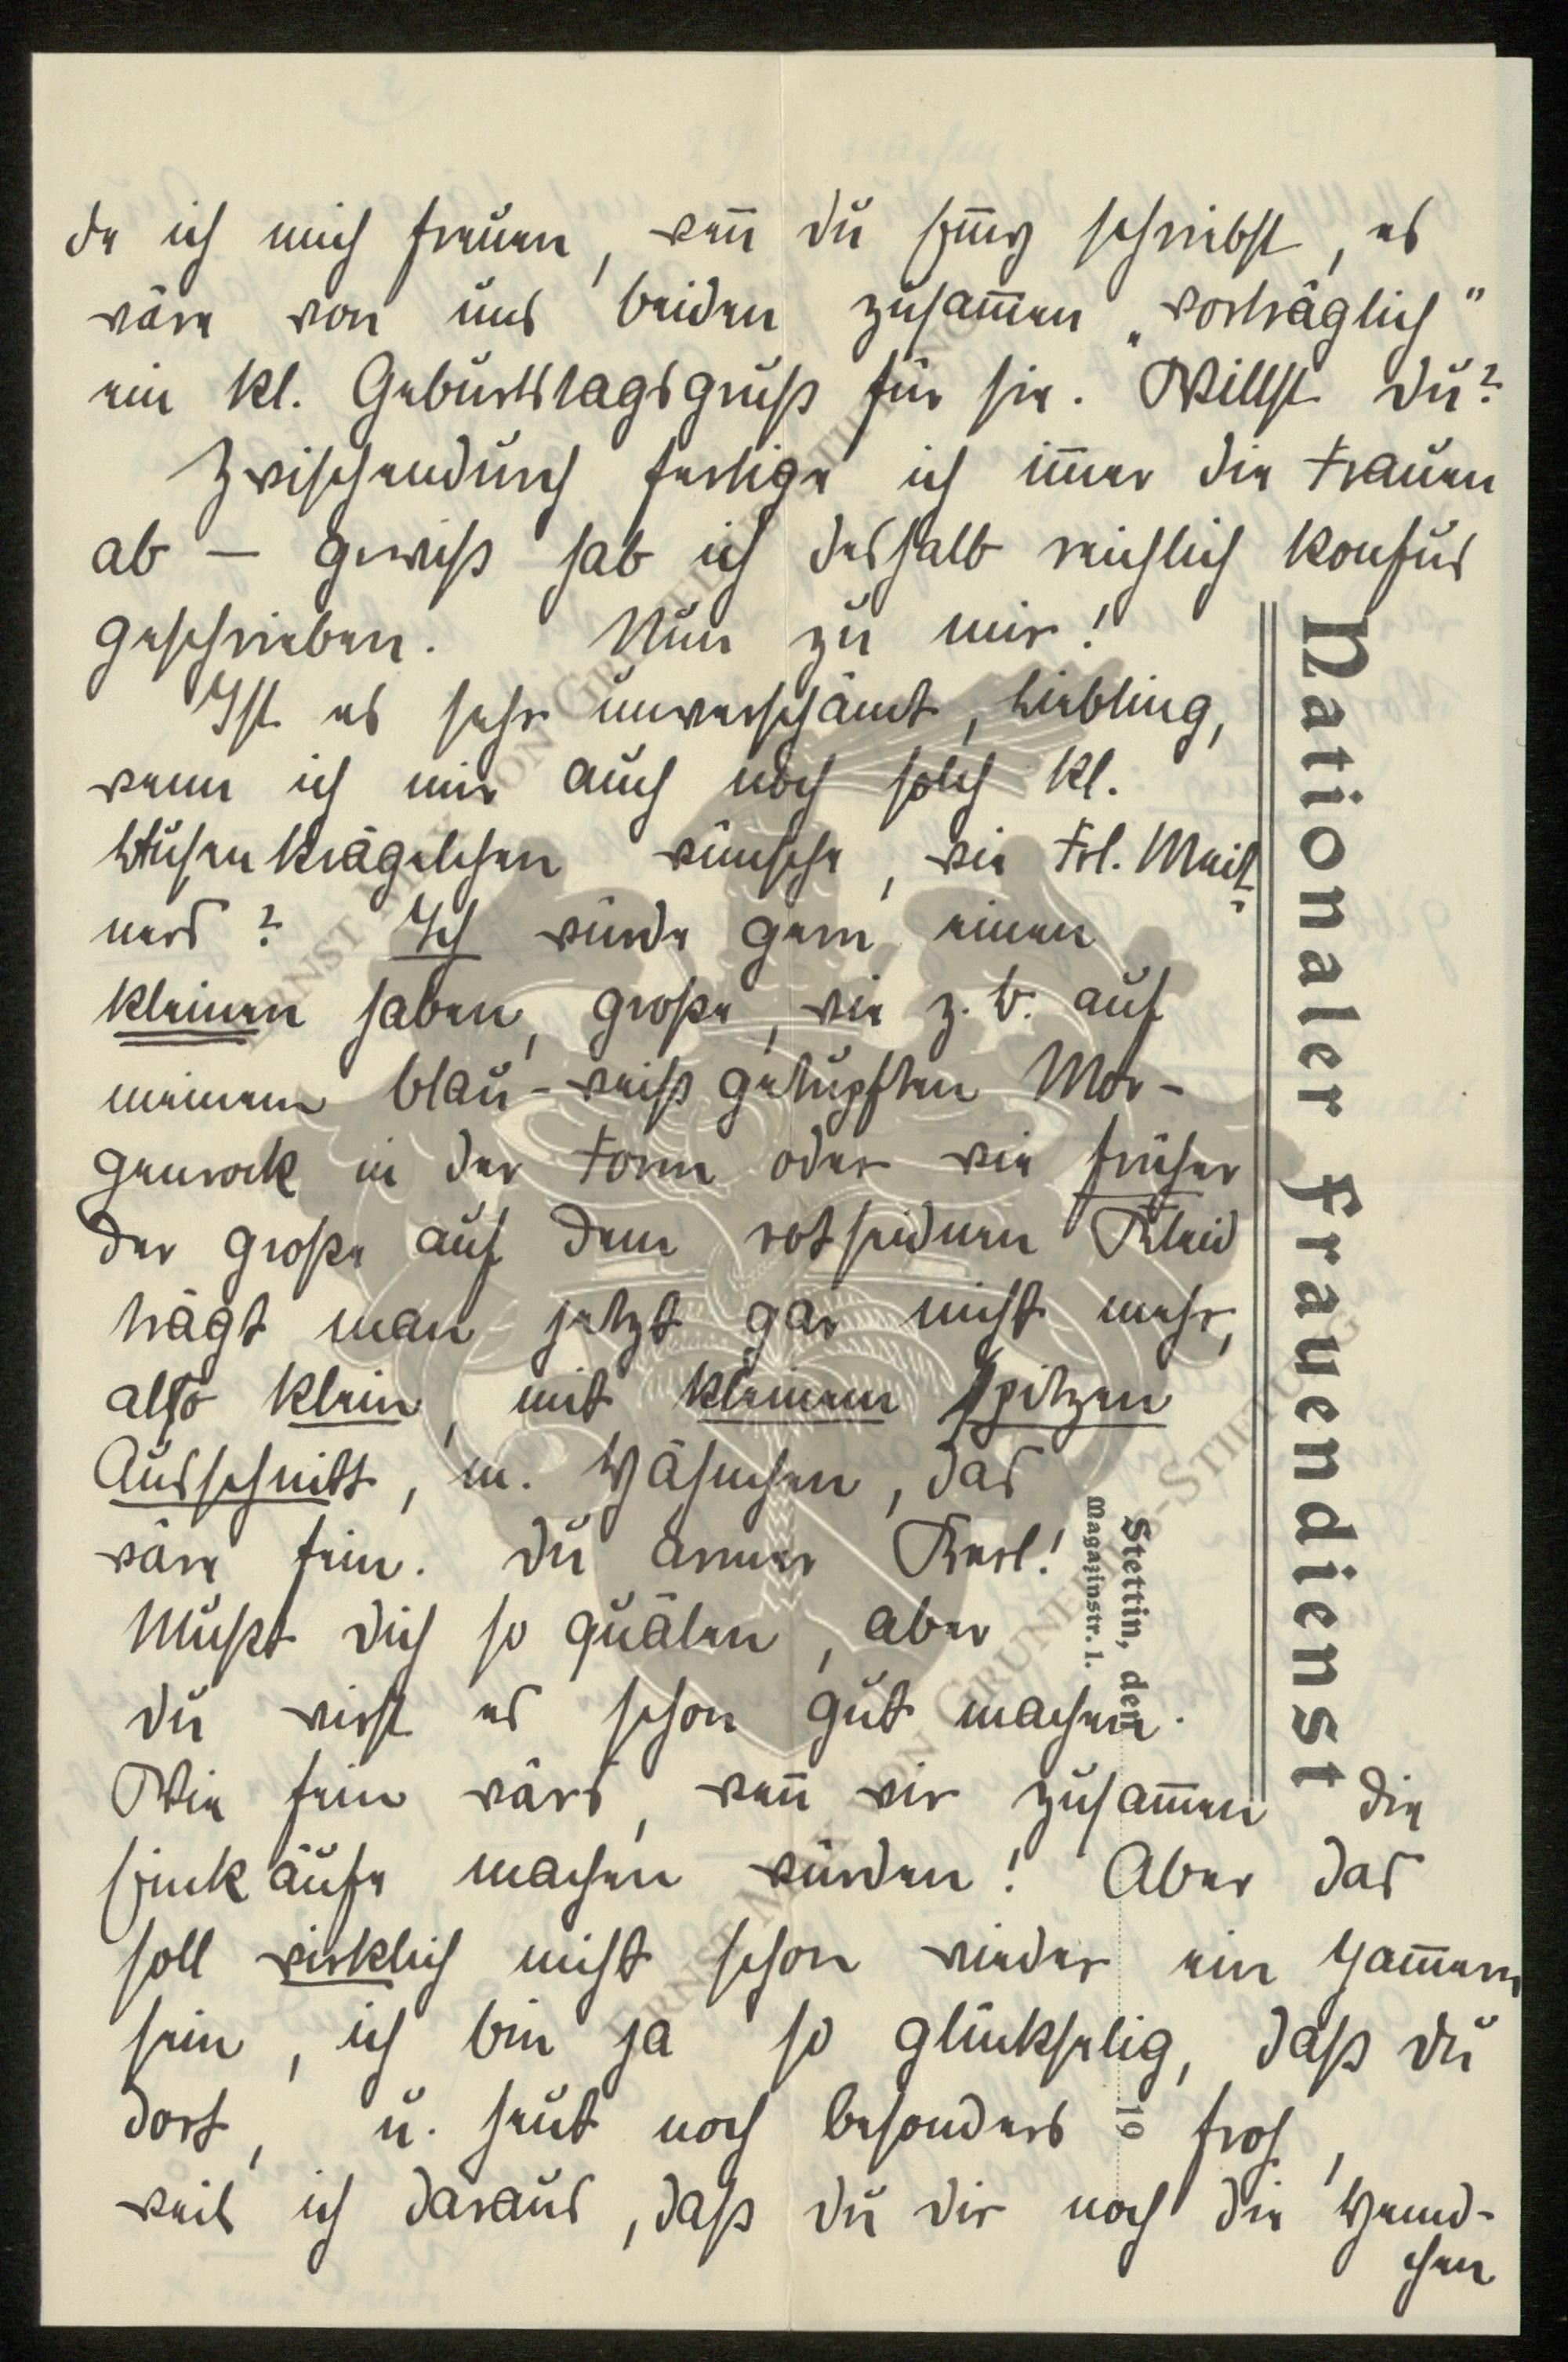 de ich mich freuen, wen̅ du Hen̅y schriebst, es
wäre von uns beiden zusam̅en „vorträglich"
ein kl. Geburtstagsgruß für sie. Willst du?
Zwischendurch fertige ich im̅er die Frauen
ab — gewiß hab ich deshalb reichlich konfus
geschrieben. Nun zu mir!
Ist es sehr unverschämt, Liebling,
wenn ich mir auch noch solch kl.
Blusenkrägelchen wünsche, wie Frl. Meiß-
ners? Ich würde gern einen
kleinen haben, große, wie z. B. auf
meinem blau-weiß getupften Mor-
genrock in der Form oder wie früher
der große auf dem rotseidnen Kleid
trägt man jetzt gar nicht mehr,
also klein, mit kleinem spitzen
Ausschnitt, m. Zähnchen, das
wäre fein. Du armer Kerl!
Mußt dich so quälen, aber
du wirst es schon gut machen.
Wie fein wärs, wen̅ wir zusam̅en die
Einkäufe machen würden! Aber das
soll wirklich nicht schon wieder ein Jam̅ern
sein, ich bin ja so glückselig, daß du
dort, u. heut noch besonders froh,
weil ich daraus, daß du dir noch die Hemd-
chen
Nationaler Frauendienst
Stettin, den
Magazinstr. 1.
19
ERNST MORITZ VON GRUNELIUS-STIFTUNG